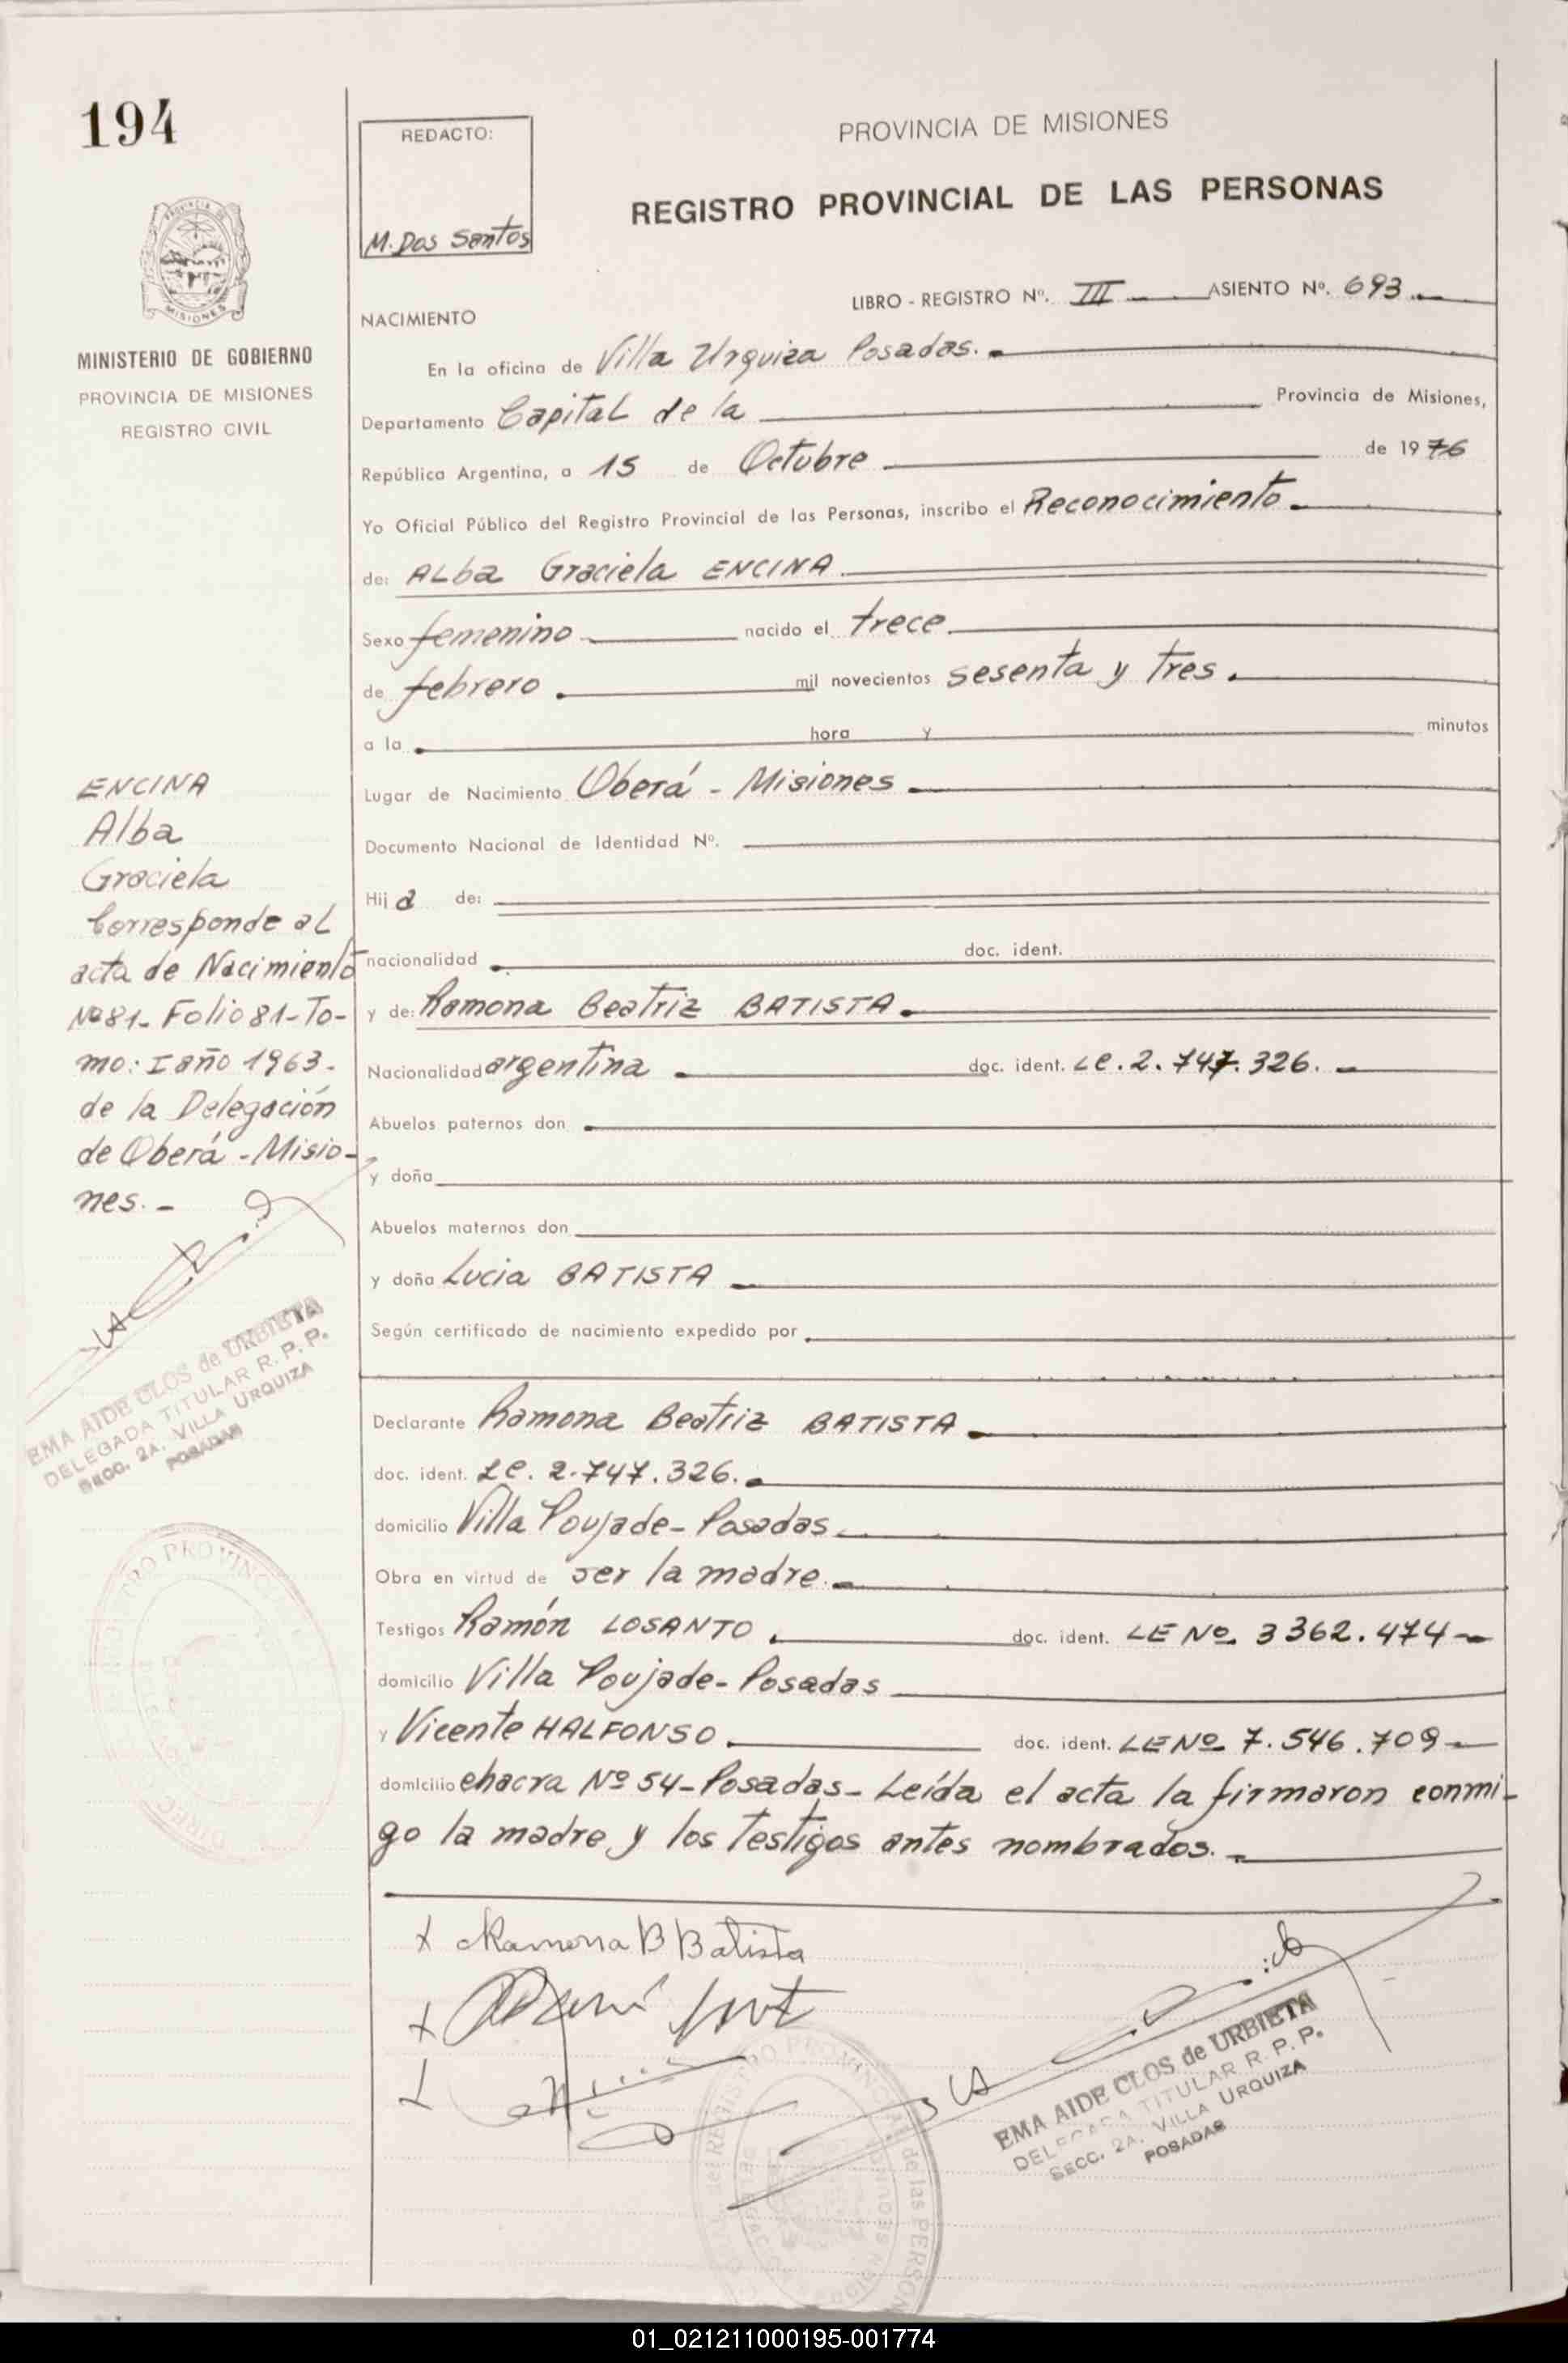 194
REDACTO:
M. Dos Santos
PROVINCIA DE MISIONES
REGISTRO PROVINCIAL DE LAS PERSONAS
MISIONES
MINISTERIO DE GOBIERNO
PROVINCIA DE MISIONES
REGISTRO CIVIL
LIBRO - REGISTRO Nº. III ASIENTO Nº. 693
NACIMIENTO
En la oficina de Villa Urquiza Posadas.
Departamento Capital de la Provincia de Misiones,
República Argentina, a 15 de Octubre de 1976
Yo Oficial Público del Registro Provincial de las Personas, inscribo el Reconocimiento
de: ALba Graciela ENCINA
Sexo femenino nacido el trece
de febrero mil novecientos sesenta y tres
a la hora y minutos
Lugar de Nacimiento Oberá - Misiones
Documento Nacional de Identidad Nº.
Hija de:
nacionalidad doc. ident.
y de: Ramona Beatriz BATISTA
Nacionalidad argentina doc. ident. LE. 2.747.326.
Abuelos paternos don
y doña
Abuelos maternos don
y doña Lucia BATISTA
Según certificado de nacimiento expedido por
Declarante Ramona Beatriz BATISTA
doc. ident. LE. 2.747.326.
domicilio Villa Poujade - Posadas
Obra en virtud de ser la madre.
Testigos Ramón LOSANTO doc. ident. LE Nº 3362.474
domicilio Villa Poujade - Posadas
y Vicente HALFONSO doc. ident. LE Nº 7.546.709
domicilio chacra Nº 54 - Posadas - Leída el acta la firmaron conmi-
go la madre y los testigos antes nombrados.
ENCINA
Alba
Graciela
Corresponde al
acta de Nacimiento
Nº 81 - Folio 81 - To-
mo: I año 1963.
de la Delegación
de Oberá - Misio-
nes.
EMA AIDE CLOS de URBIETA
DELEGADA TITULAR R. P. P.
SECC. 2A. VILLA URQUIZA
POSADAS
x Ramona B Batista
EMA AIDE CLOS de URBIETA
DELEGADA TITULAR R. P. P.
SECC. 2A. VILLA URQUIZA
POSADAS
01_021211000195-001774